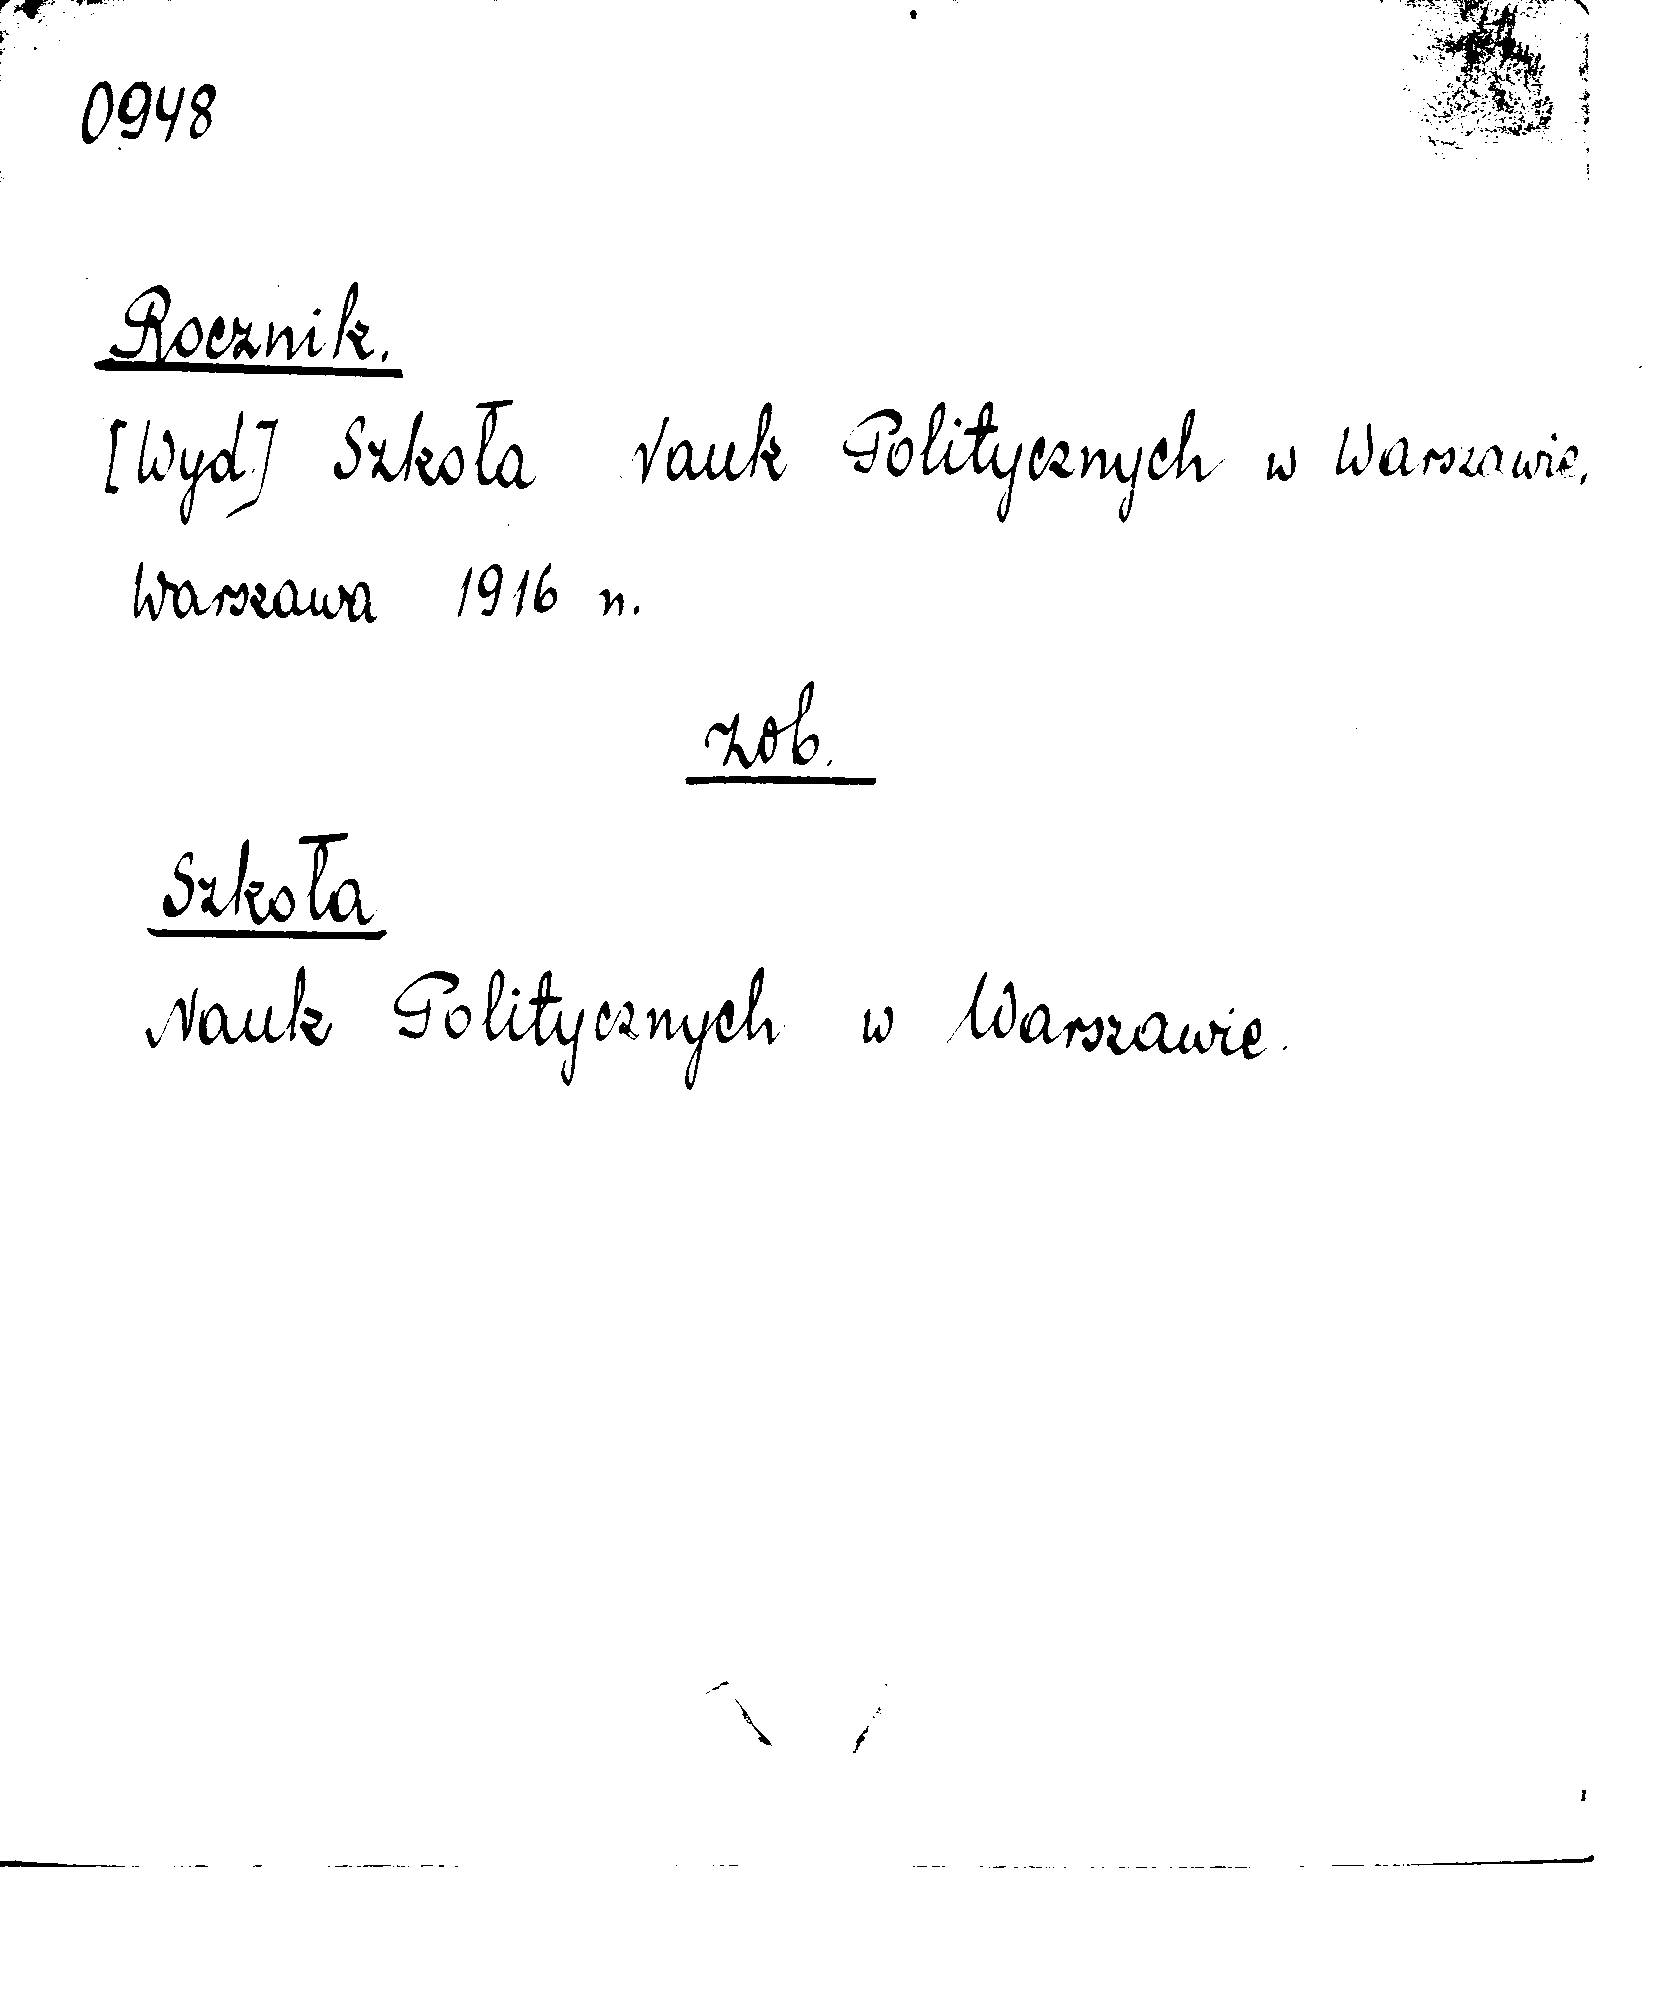 0948
Rocznik.
[Wyd.] Szkoła Nauk Politycznych w Warszawie.
Warszawa 1916 n.
zob.
Szkoła
Nauk Politycznych w Warszawie.